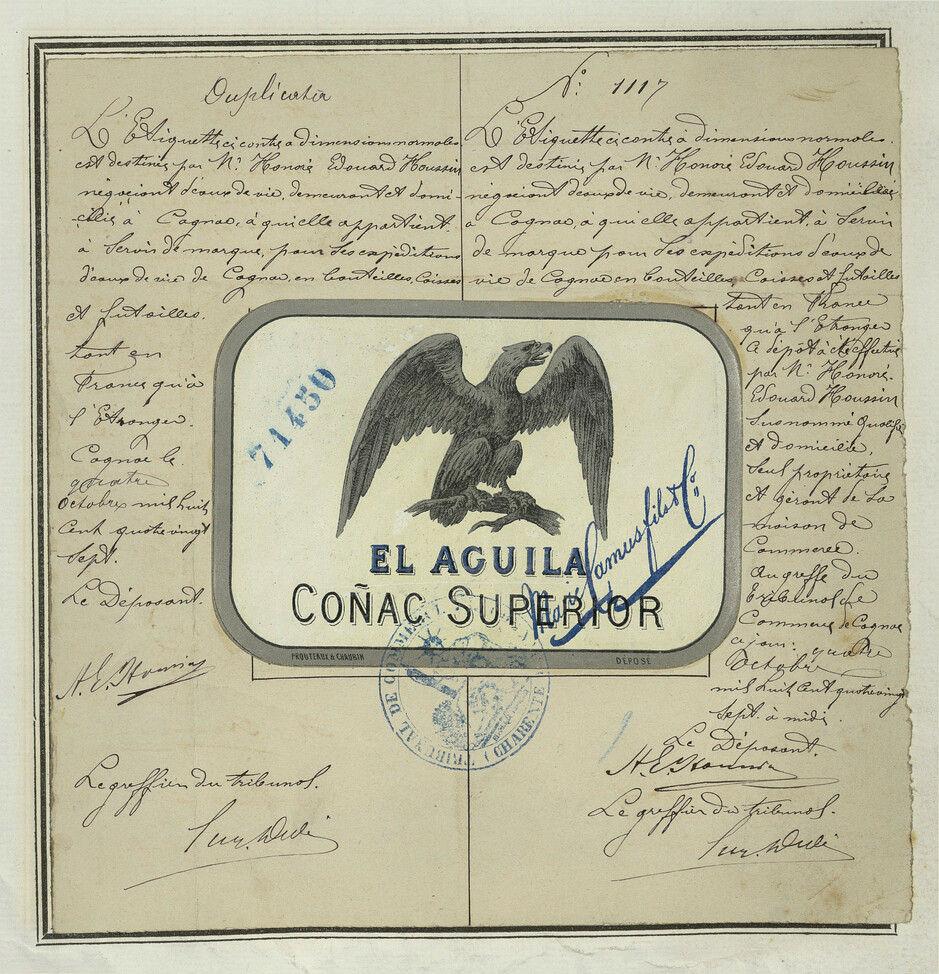 Duplicata
L'Etiquette ci contre à dimensions normales
est destinée par Mr. Honoré Edouard Houssin
négociant d'eaux de vie, demeurant et domi-
cilié à Cognac, à qui elle appartient.
à Servir de marque, pour ses expéditions
d'eaux de vie de Cognac, en bouteilles, Caisses
et futailles.
tant en
France qu'à
l'Etranger.
Cognac le
quatre
Octobre mil huit
Cent quatre vingt
Sept.
Le Déposant.
H. E. Houssin
Le greffier du tribunal.
N: 1117
L'Etiquette ci contre à dimensions normales
est destinée par Mr. Honoré Edouard Houssin
négociant d'eaux de vie, demeurant et domicilié
à Cognac, à qui elle appartient, à Servir
de marque pour ses expéditions d'eaux de
vie de Cognac en bouteilles, Caisses et futailles
tant en France
qu'à l'Etranger
Ce dépôt à été effectué
par Mr. Honoré-
Edouard Houssin
Susnommé qualifié
et domicilié,
Seul propriétaire
et gérant de la
maison de
Commerce.
au greffe du
tribunal de
Commerce de Cognac
ce jour: quatre
Octobre
mil huit cent quatre vingt
Sept. à midi.
Le Déposant.
H. E. Houssin
Le greffier du tribunal.
71450
EL AGUILA
COÑAC SUPERIOR
Camus fils & Co
PROUTEAUX & CHAUBIN
DÉPOSÉ
TRIBUNAL DE COMMERCE
(CHARENTE